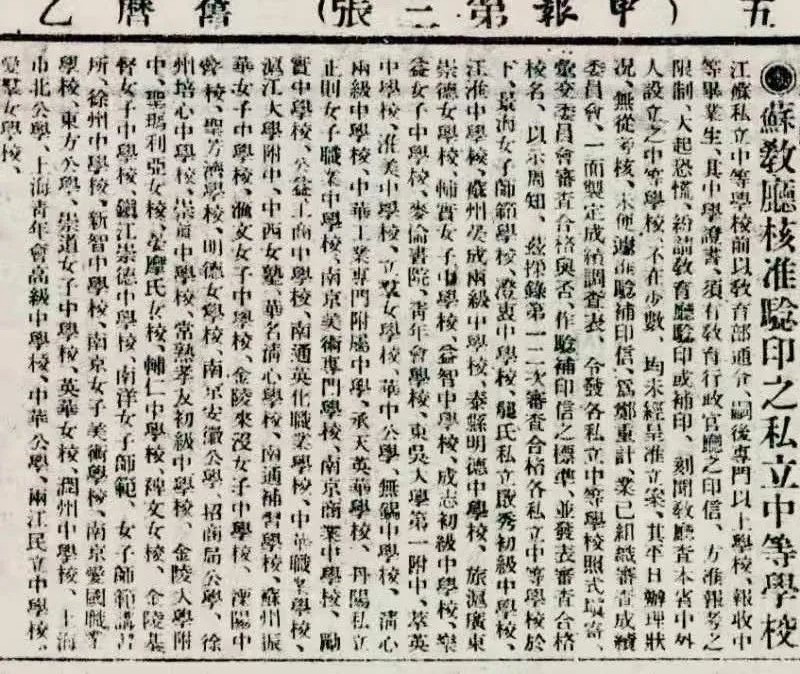 五
（申報第二張）
舊曆乙
蘇教廳核准驗印之私立中等學校
江蘇私立中等學校前以教育部通令、嗣後專門以上學校、報收中
等畢業生、其中學證書、須有教育行政官廳之印信、方准報考之
限制、大起恐慌、紛請教育廳驗印或補印、刻聞教廳查本省中外
人設立之中等學校、不在少數、均未經呈准立案、其平日辦理狀
況、無從考核、未便遽准驗補印信、爲鄭重計、業已組織審查成績
委員會、一面製定成績調查表、令發各私立中等學校照式填寄、
彙交委員會審查合格與否、作驗補印信之標準、並發表審查合格
校名、以示周知、茲探錄第一二次審查合格各私立中等學校於
下、景海女子師範學校、澄衷中學校、龔氏私立啟秀初級中學校、
江淮中學校、蘇州晏成兩級中學校、泰縣明德中學校、旅滬廣東
崇德女學校、輔實女子中學校、益智中學校、成志初級中學校、樂
益女子中學校、麥倫書院、青年會學校、東吳大學第一附中、萃英
中學校、淮美中學校、立羣女學校、華中公學、無錫中學校、清心
兩級中學校、中華工業專門附屬中學、承天英華學校、丹陽私立
正則女子職業中學校、南京美術專門學校、南京商業中學校、勵
實中學校、公益工商中學校、南通英化職業學校、中華職業學校、
滬江大學附中、中西女塾、華名清心學校、南通補習學校、蘇州振
華女子中學校、漁文女子中學校、金陵來沒女子中學校、溧陽中
學校、聖芳濟學校、明德女學校、南京安徽公學、招商局公學、徐
州培心中學校、崇眞中學校、常熟孝友初級中學校、金陵大學附
中、聖瑪利亞女校、晏摩氏女校、輔仁中學校、稗文女校、金陵基
督女子中學校、鎭江崇德中學校、南洋女子師範、女子師範講習
所、徐州中學校、新智中學校、南京女子美術學校、南京愛國職業
學校、東方公學、崇道女子中學校、英華女校、潤州中學校、上海
市北公學、上海靑年會高級中學校、中華公學、兩江民立中學校、
愛羣女學校、